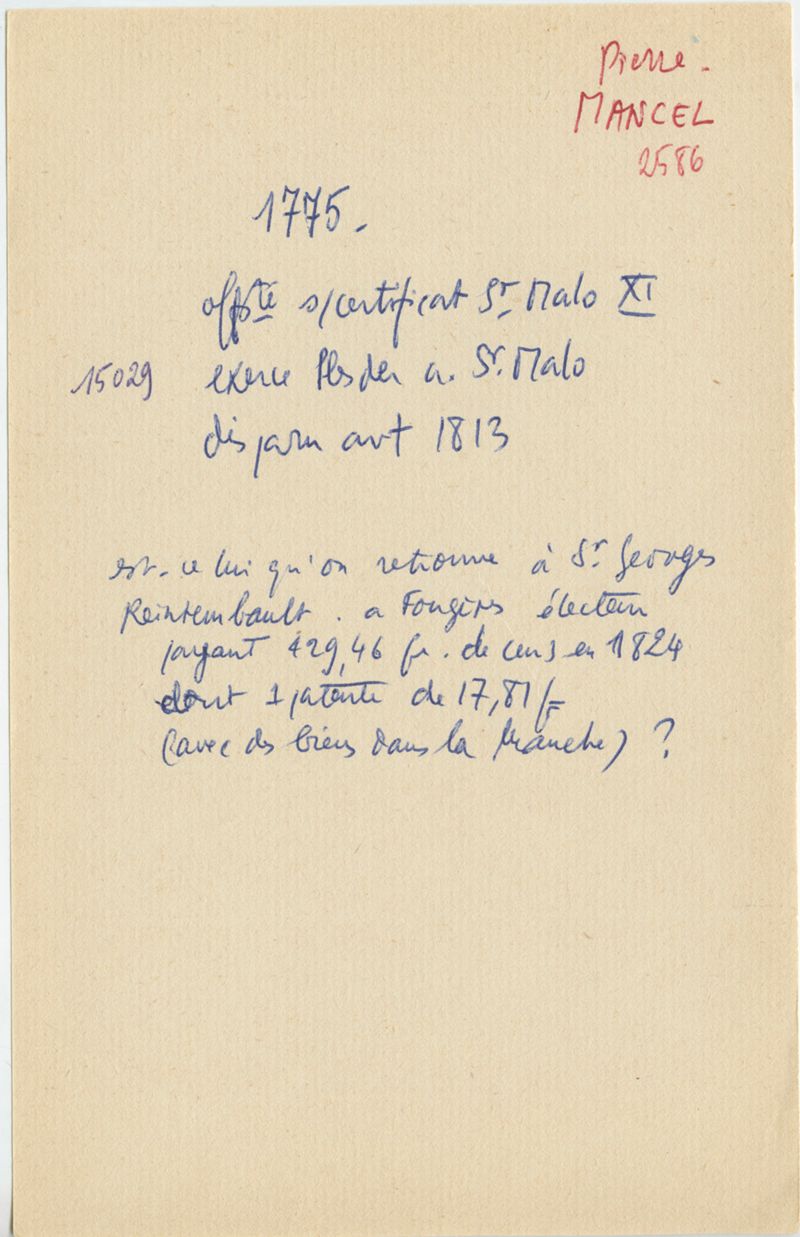 Pierre.
MANCEL
2586
1775.
offté s/certificat St Malo XI
15029 exerce Plesder a. St. Malo
disparu avt 1813
est-ce lui qu'on retrouve à St Georges
Reintembault. a Fougères électeur
payant 429,46 fr. de cens en 1824
dont 1 patente de 17,81 f
(avec des biens dans la Manche) ?